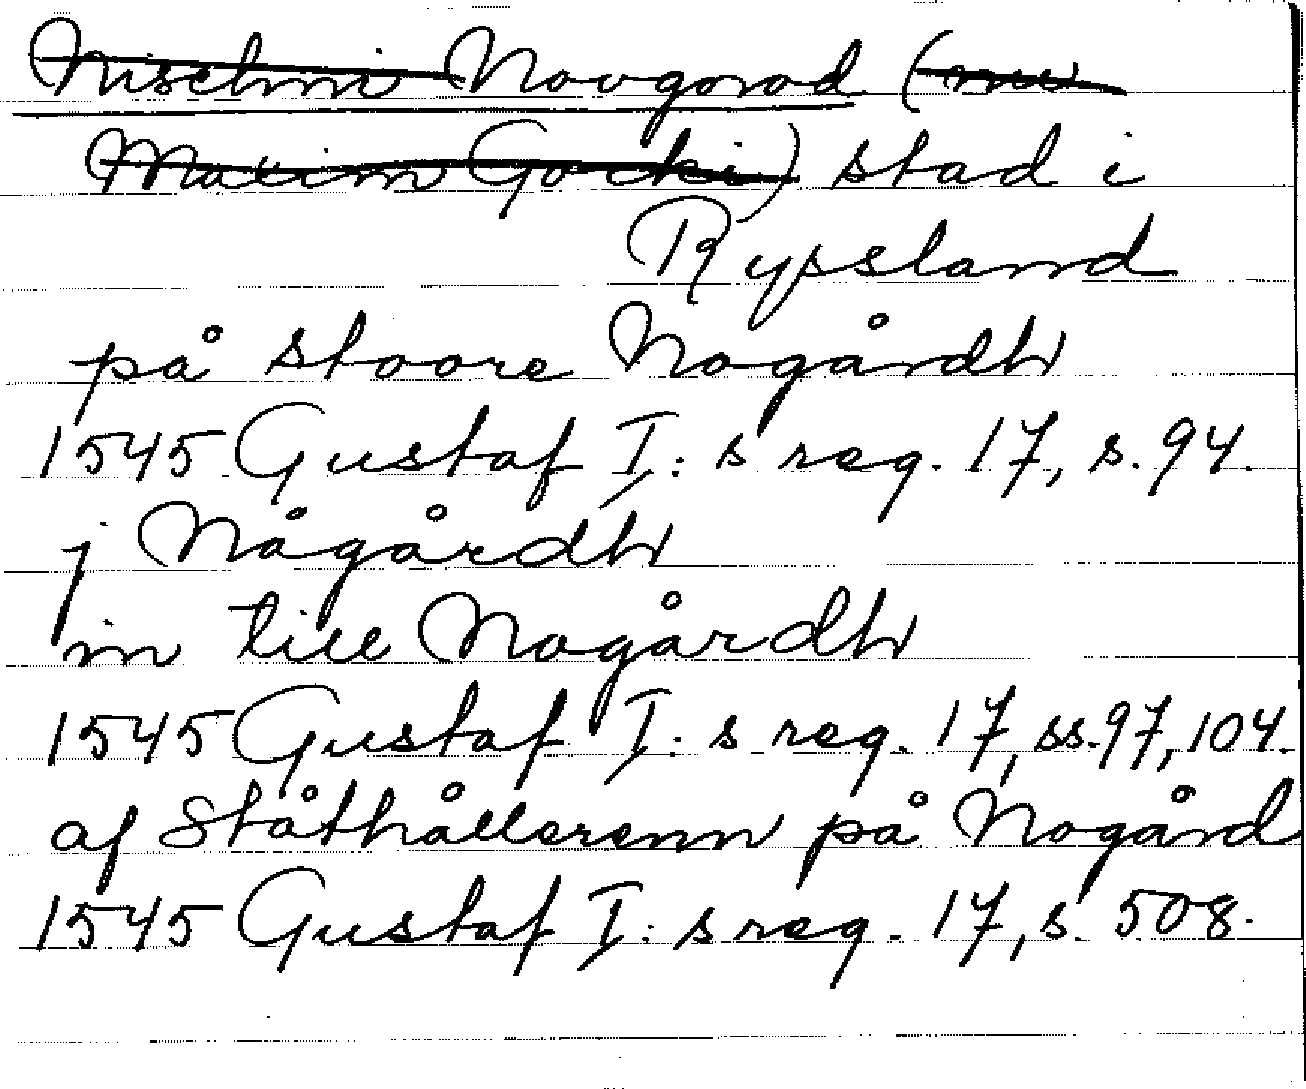 Nischni Novgorod (nu
Maxim Gorki) stad i
Ryssland
på stoore Nogårdh
1545 Gustaf I: s reg. 17, s. 94.
j Någårdh
in till Nogårdh
1545 Gustaf I: s reg. 17, ss. 97, 104.
af Ståthållerenn på Nogård
1545 Gustaf I: s reg. 17, s. 508.